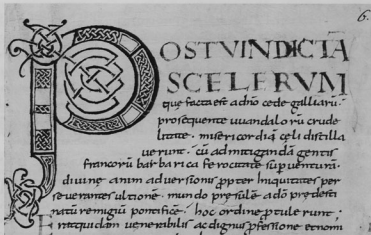 6.
POST VINDICTĀ
SCELERVM
que facta est adnō cede galliarū.
prosequente uuandalorū crude
litate. misericordiā celi distilla
uerunt. cū admitiganda gentis
francorū barbarica ferocitate supuenturā.
diuine animaduersionis ppter iniquitates per
seuerantes ultionē. mundo presulē adō predesti
natū remigiū pontificē. hoc ordine ptulerunt;
Erat quidam uenerabilis ac dignus pfessione & nomi